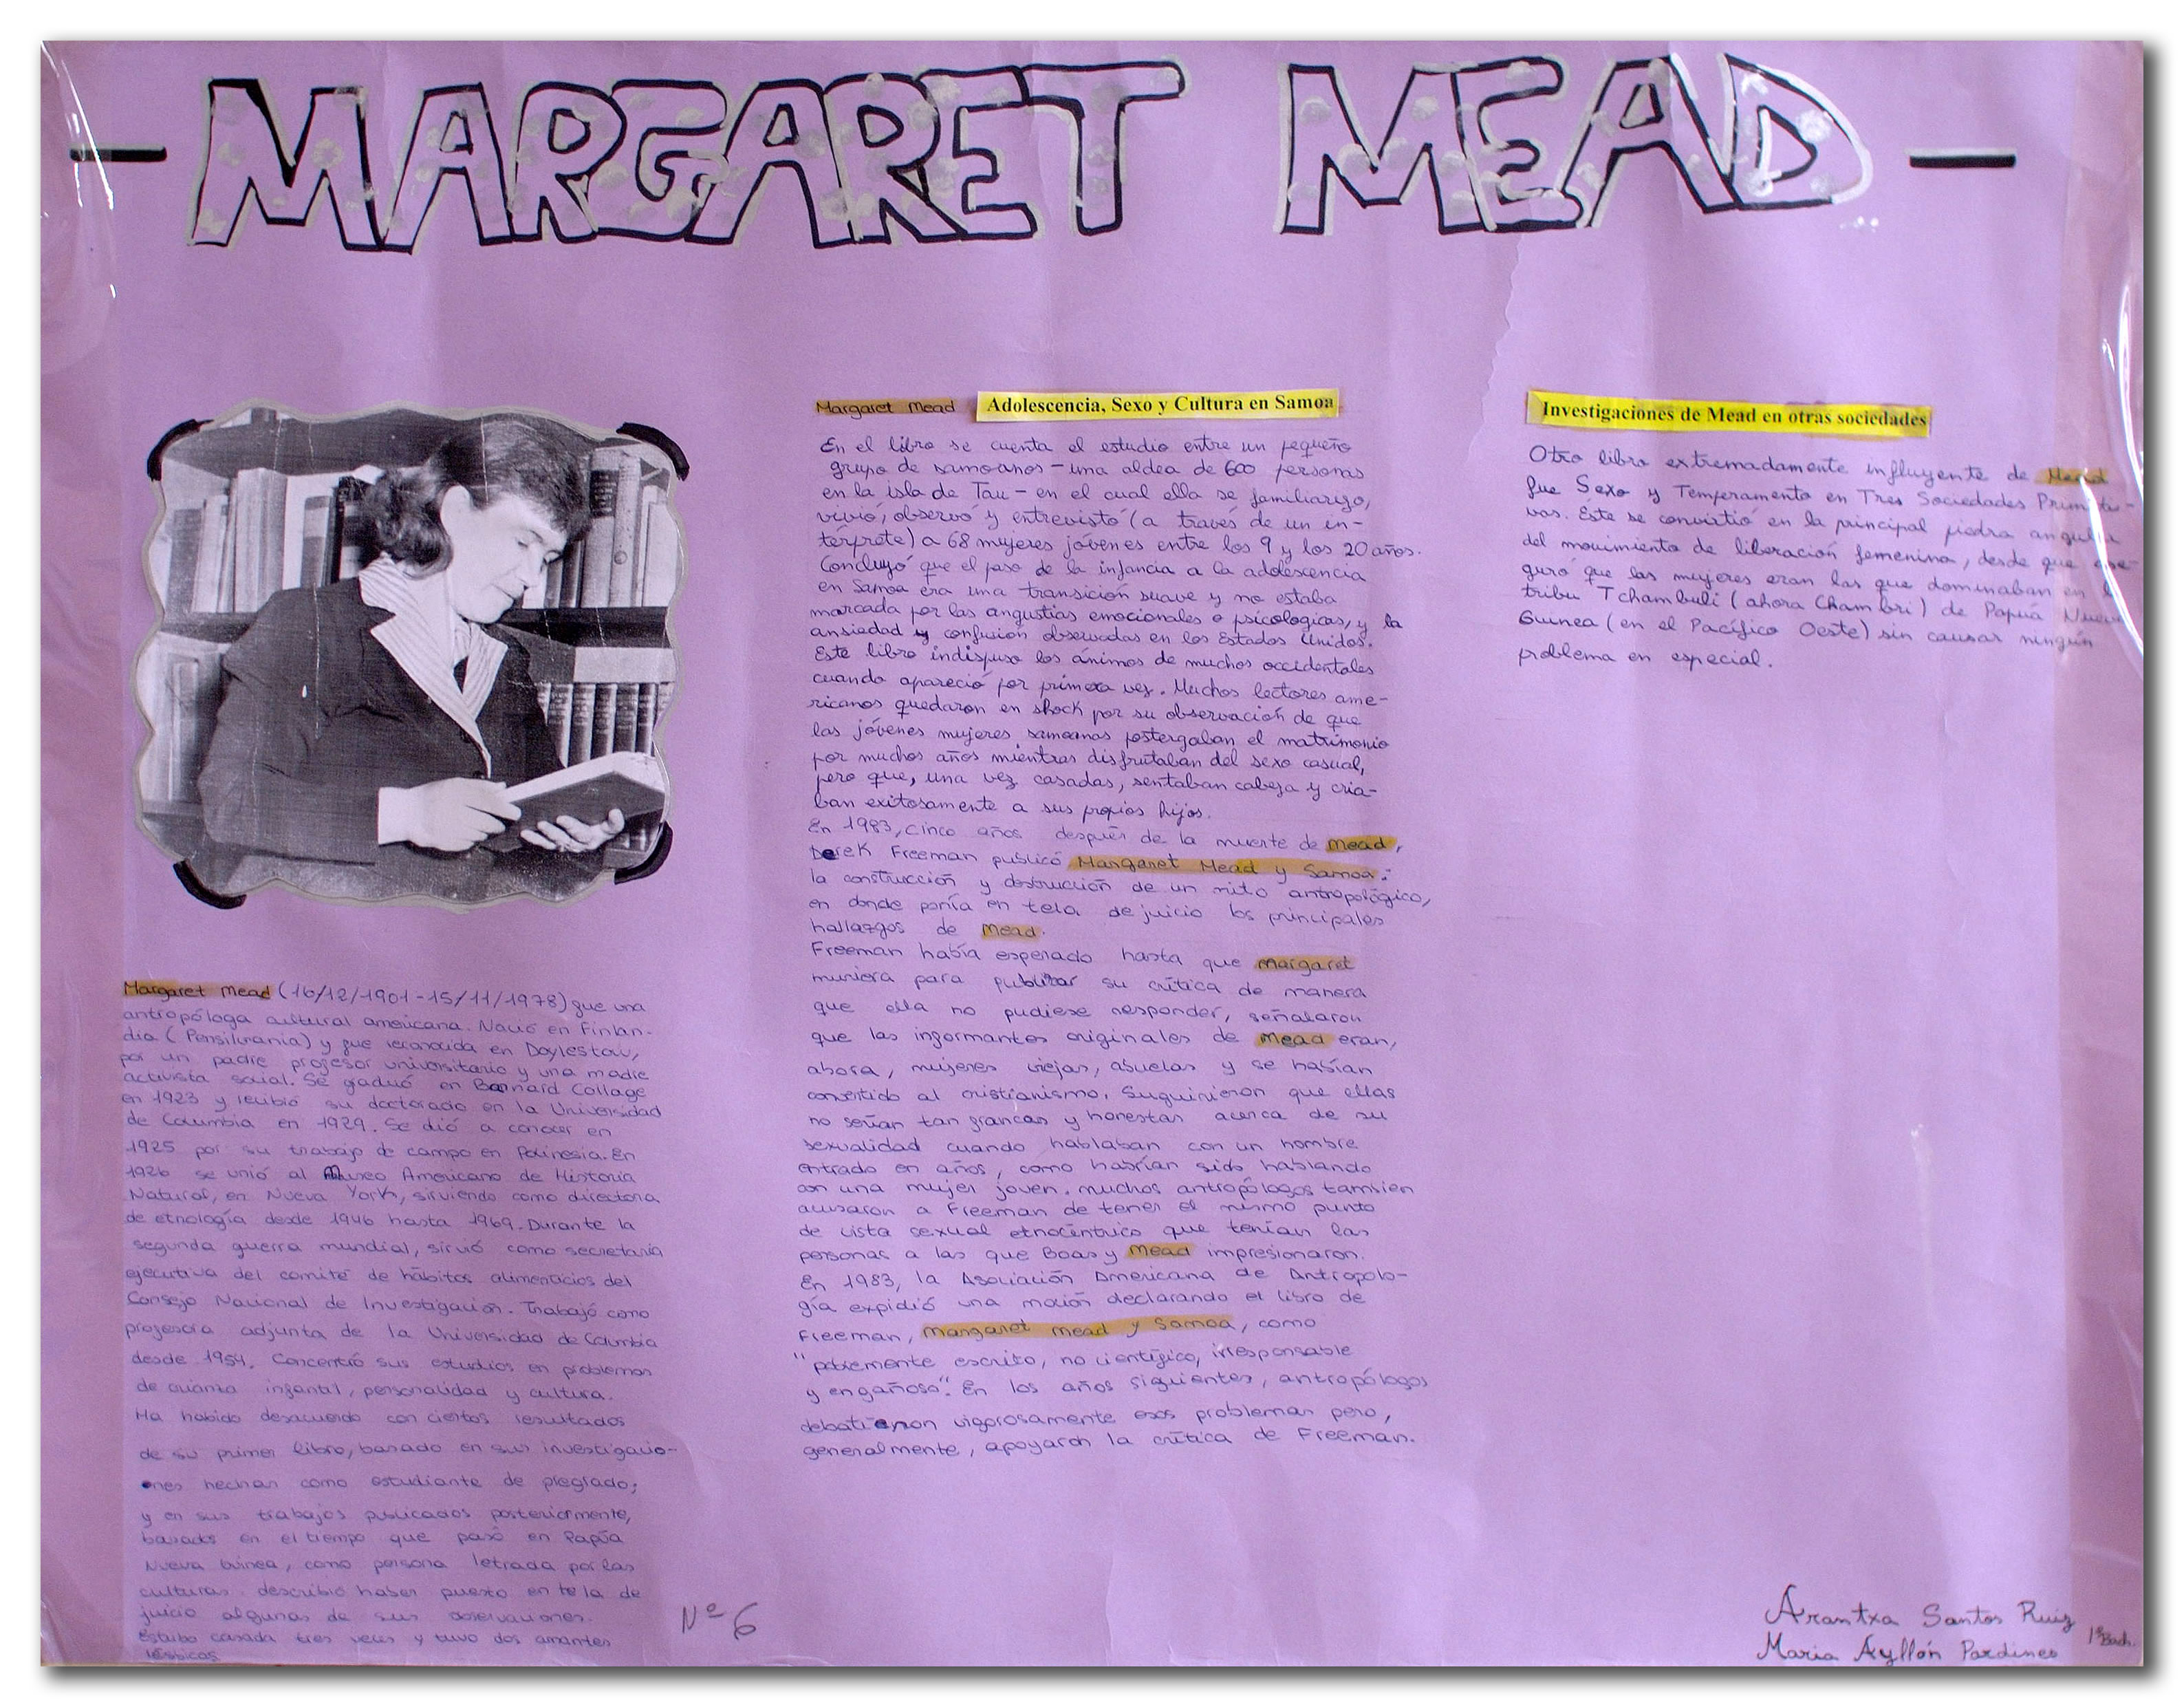 - MARGARET MEAD -
Margaret Mead (16/12/1901-15/11/1978) fue una
antropóloga cultural americana. Nació en Finlan-
dia (Pensilvania) y fue reconocida en Doylestow,
por un padre profesor universitario y una madre
activista social. Se graduó en Barnard Collage
en 1923 y recibió su doctorado en la Universidad
de Columbia en 1929. Se dió a conocer en
1925 por su trabajo de campo en Polinesia. En
1926 se unió al Museo Americano de Historia
Natural, en Nueva York, sirviendo como directora
de etnología desde 1946 hasta 1969. Durante la
segunda guerra mundial, sirvió como secretaria
ejecutiva del comité de hábitos alimenticios del
Consejo Nacional de Investigación. Trabajó como
profesora adjunta de la Universidad de Columbia
desde 1954. Concentró sus estudios en problemas
de crianza infantil, personalidad y cultura.
Ha habido desacuerdo con ciertos resultados
de su primer libro, basado en sus investigacio-
ones hechas como estudiante de pregrado;
y en sus trabajos publicados posteriormente,
basados en el tiempo que pasó en Papúa
Nueva Guinea, como persona letrada por las
culturas describió haber puesto en tela de
juicio algunas de sus observaciones.
Estubo casada tres veces y tuvo dos amantes
lésbicas
Nº 6
Margaret Mead Adolescencia, Sexo y Cultura en Samoa
En el libro se cuenta el estudio entre un pequeño
grupo de samoanos - una aldea de 600 personas
en la isla de Tau - en el cual ella se familiarizo,
vivió, observó y entrevistó (a través de un in-
térprete) a 68 mujeres jóvenes entre los 9 y los 20 años.
Concluyó que el paso de la infancia a la adolescencia
en Samoa era una transición suave y no estaba
marcada por las angustias emocionales o psicologías, y la
ansiedad y confusión observadas en los Estados Unidos.
Este libro indispuso los ánimos de muchos occidentales
cuando apareció por primera vez. Muchos lectores ame-
ricanos quedaron en shock por su observación de que
las jóvenes mujeres samoanas postergaban el matrimonio
por muchos años mientras disfrutaban del sexo casual,
pero que, una vez casadas, sentaban cabeza y cria-
ban exitosamente a sus propios hijos.
En 1983, cinco años después de la muerte de Mead,
Derek Freeman publicó Margaret Mead y Samoa:
la construcción y destrucción de un mito antropológico,
en donde ponía en tela de juicio los principales
hallazgos de Mead.
Freeman había esperado hasta que Margaret
muriera para publicar su crítica de manera
que ella no pudiese responder, señalaron
que las informantes originales de Mead eran,
ahora, mujeres viejas, abuelas y se habían
convertido al cristianismo. Suguirieron que ellas
no serían tan francas y honestas acerca de su
sexualidad cuando hablaban con un hombre
entrado en años, como habrían sido hablando
con una mujer joven. muchos antropólogos tambien
acusaron a Freeman de tener el mismo punto
de vista sexual etnocéntrico que tenían las
personas a las que Boas y Mead impresionaron.
En 1983, la Asociación Americana de Antropolo-
gía expidió una moción declarando el libro de
Freeman, Margaret Mead y Samoa, como
"pobremente escrito, no científico, irresponsable
y engañoso". En los años siguientes, antropólogos
debatieron vigorosamente esos problemas pero,
generalmente, apoyaron la crítica de Freeman.
Investigaciones de Mead en otras sociedades
Otro libro extremadamente influyente de Mead
fue Sexo y Temperamento en Tres Sociedades Primiti-
vas. Este se convirtió en la principal piedra angular
del movimiento de liberación femenina, desde que ase-
guró que las mujeres eran las que dominaban en la
tribu Tchambuli (ahora Chambri) de Papúa Nueva
Guinea (en el Pacífico Oeste) sin causar ningún
problema en especial.
Arantxa Santos Ruiz
Maria Ayllón Pardines 1º Bach.